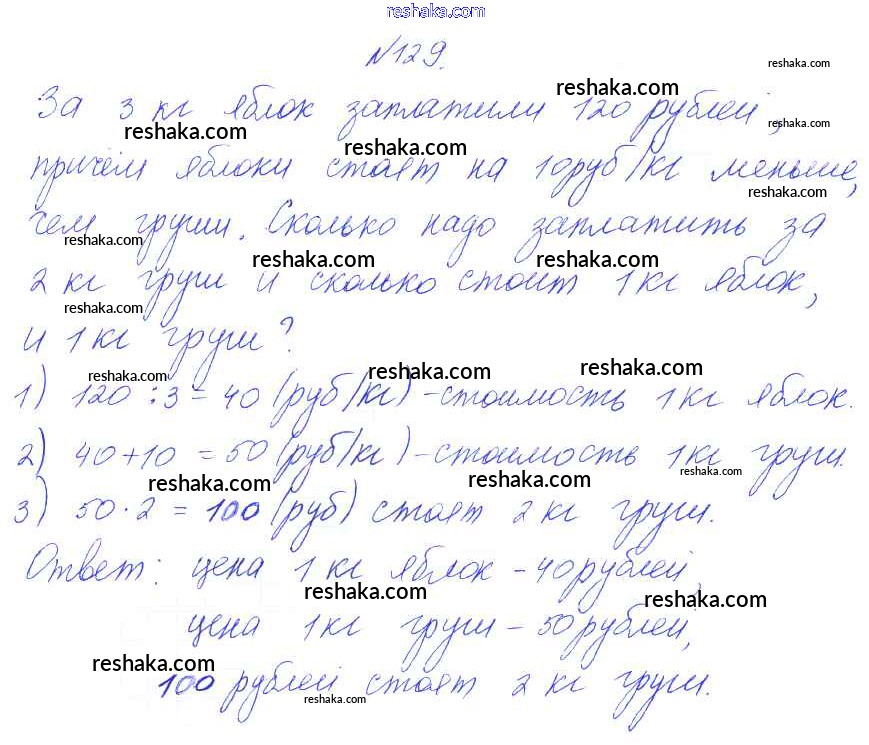 reshaka.com
№129.
reshaka.com
За 3 кг яблок заплатили 120 рублей,
reshaka.com
reshaka.com
reshaka.com
reshaka.com
причём яблоки стоят на 10руб/кг меньше,
reshaka.com
чем груши. Сколько надо заплатить за
reshaka.com
reshaka.com
reshaka.com
2 кг груш и сколько стоит 1 кг яблок,
reshaka.com
и 1 кг груш?
reshaka.com
reshaka.com
reshaka.com
1) 120 : 3 = 40 (руб/кг) - стоимость 1 кг яблок.
2) 40+10 = 50 (руб/кг) - стоимость 1 кг груш.
reshaka.com
reshaka.com
reshaka.com
3) 50 · 2 = 100 (руб) стоят 2 кг груш.
Ответ: цена 1 кг яблок - 40 рублей,
reshaka.com
reshaka.com
цена 1 кг груш - 50 рублей,
reshaka.com
100 рублей стоят 2 кг груш.
reshaka.com